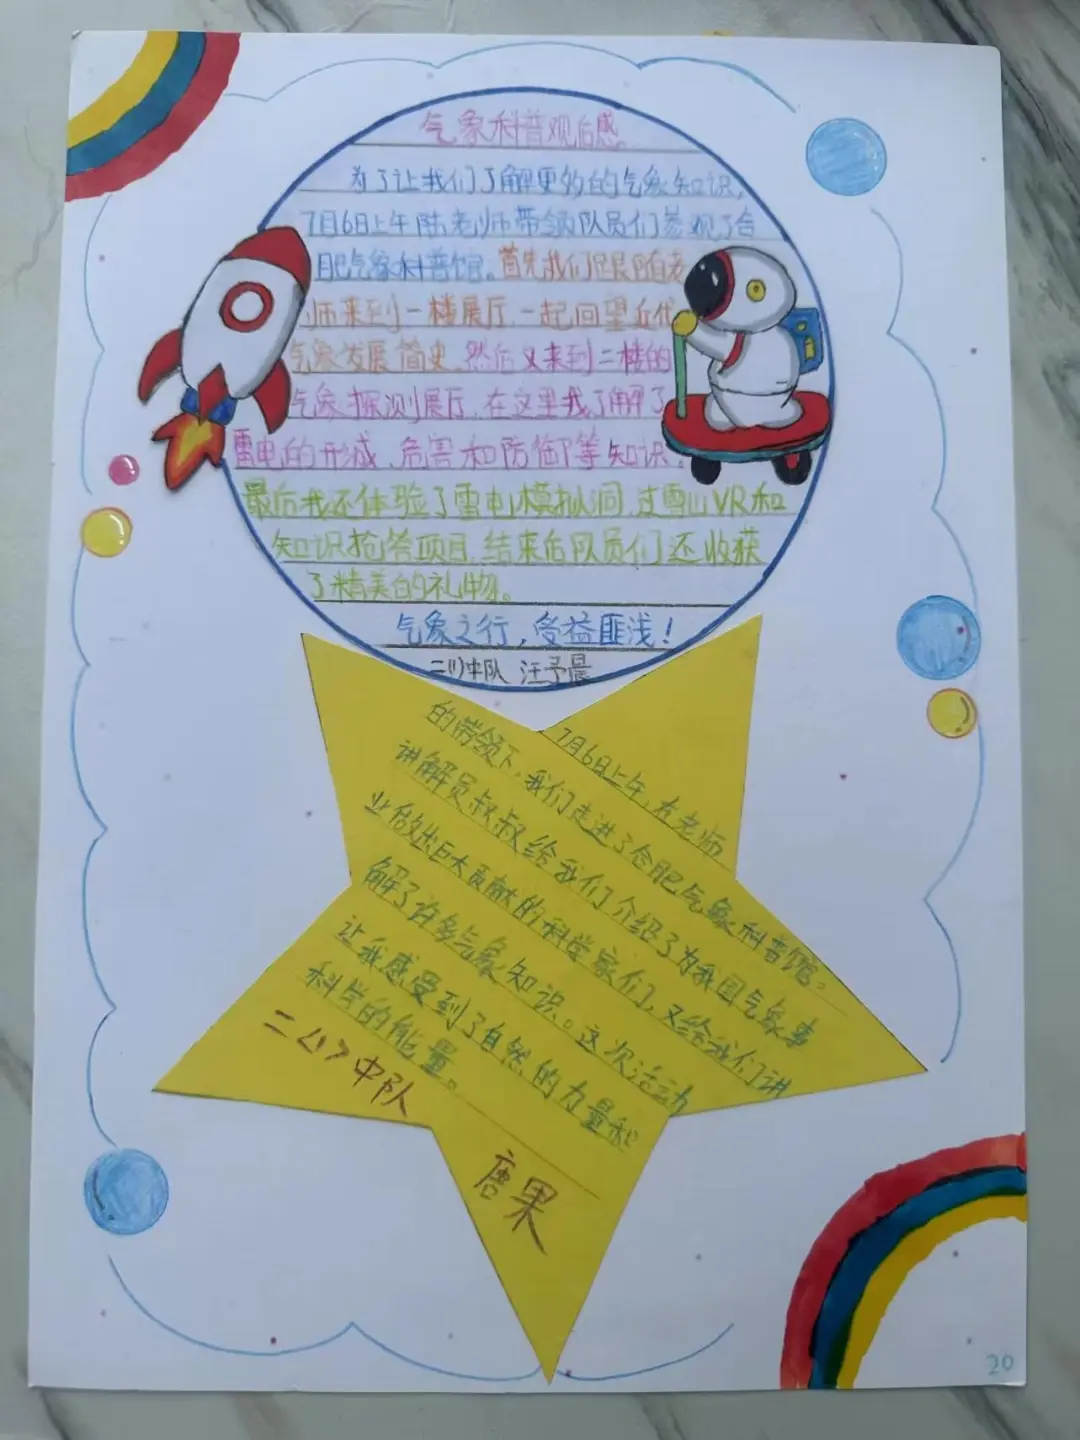 气象科普观后感
为了让我们了解更多的气象知识，
7月6日上午陆老师带领队员们参观了合
肥气象科普馆。首先我们跟随老
师来到一楼展厅，一起回望近代
气象发展简史，然后又来到二楼的
气象探测展厅，在这里我了解了
雷电的形成、危害和防御等知识。
最后我还体验了雷电模拟洞，过雪山VR和
知识抢答项目，结束后队员们还收获
了精美的礼物。
气象之行，受益匪浅！
二(1)中队 汪予晨
7月6日上午，在老师
的带领下，我们走进了合肥气象科普馆。
讲解员叔叔给我们介绍了为我国气象事
业做出巨大贡献的科学家们，又给我们讲
解了许多气象知识。这次活动
让我感受到了自然的力量和
科学的能量。
二(1)中队
唐果
20